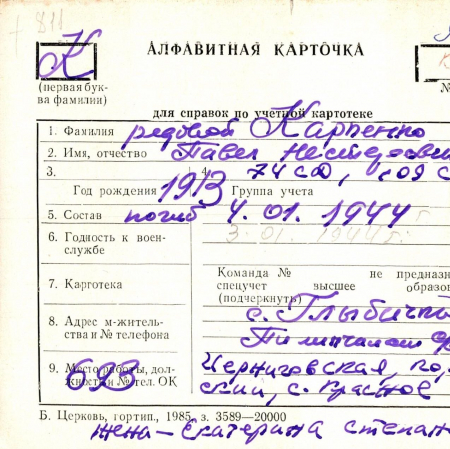 811
К
АЛФАВИТНАЯ КАРТОЧКА
(первая бук-
ва фамилии)
№
для справок по учетной картотеке
1. Фамилия рядовой Карпенко
2. Имя, отчество Павел Нестерович
3. 4. 74 сд, 109 с
Год рождения 1913 Группа учета
5. Состав погиб 4.01.1944 г
3.01.1944 г.
6. Годность к воен-
службе
7. Картотека
Команда № не предназн
спецучет высшее образо
(подчеркнуть)
8. Адрес м-житель-
ства и № телефона
с. Глыбичко
9. Место работы, дол-
жность и № тел. ОК
693
Черниговская,
ский, с. Красное
Б. Церковь, гортип., 1985, з. 3589—20000
жена — Екатерина Степан